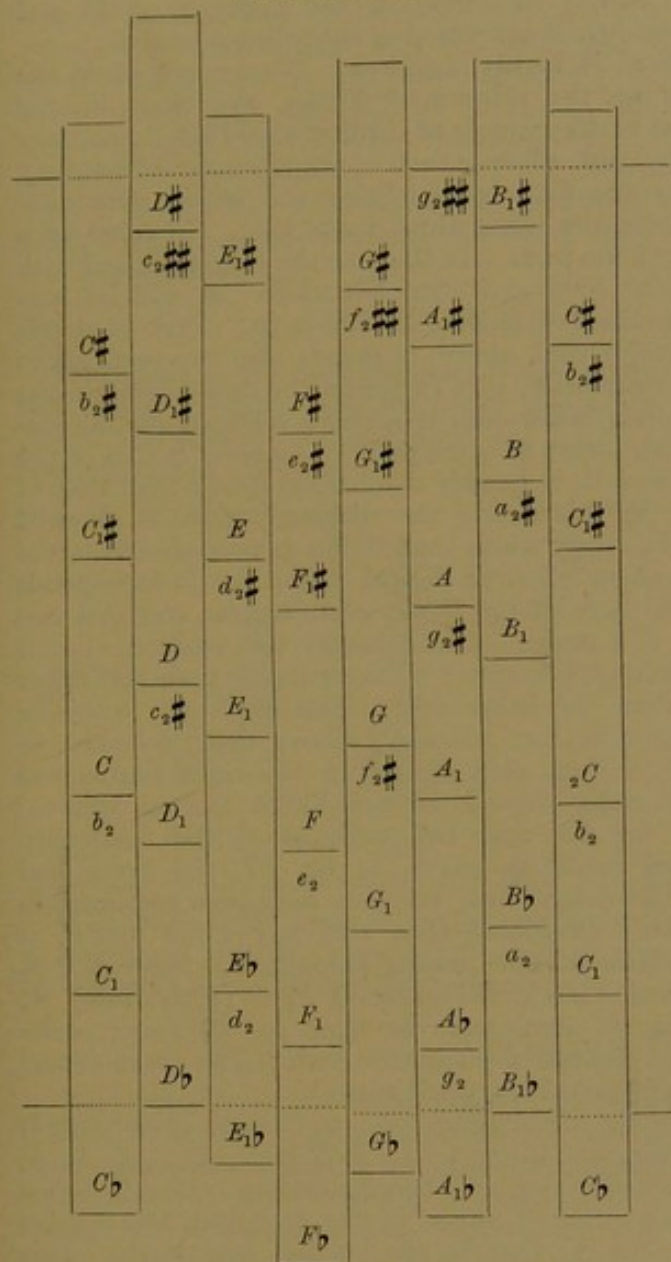 C♯
b₂♯
C₁♯
C
b₂
C₁
C♭
D♯
c₂♯♯
D₁♯
D
c₂♯
D₁
D♭
E₁♯
E
d₂♯
E₁
E♭
d₂
E₁♭
F♯
e₂♯
F₁♯
F
e₂
F₁
F♭
G♯
f₂♯♯
G₁♯
G
f₂♯
G₁
G♭
g₂♯♯
A₁♯
A
g₂♯
A₁
A♭
g₂
A₁♭
B₁♯
B
a₂♯
B₁
B♭
a₂
B₁♭
C♯
b₂♯
C₁♯
₂C
b₂
C₁
C♭